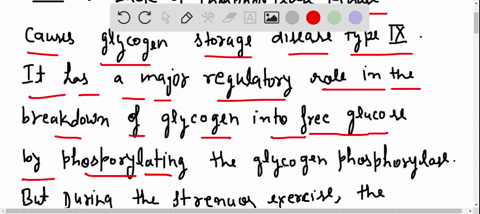 Causes glycogen storage disease Type IX.
It has a major regulatory role in the
breakdown of glycogen into free glucose
by phosporylating the glycogen phosphorylase.
But During the strenuos exercise, the